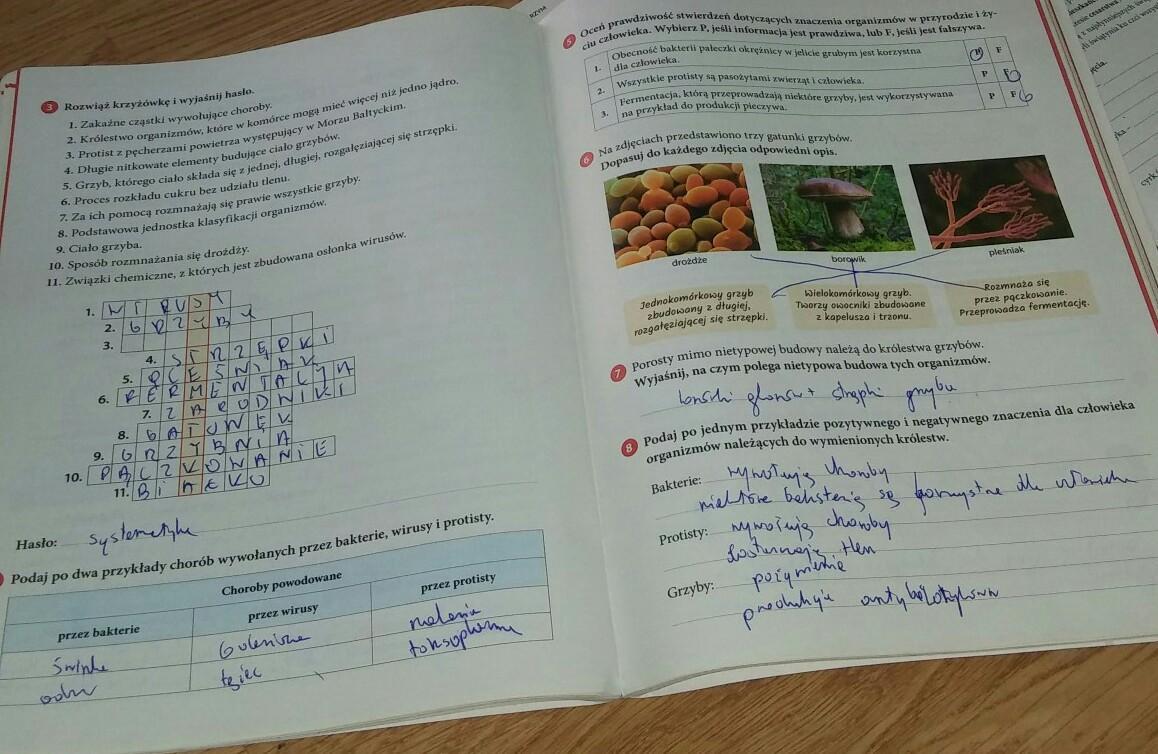 3 Rozwiąż krzyżówkę i wyjaśnij hasło.
1. Zakaźne cząstki wywołujące choroby.
2. Królestwo organizmów, które w komórce mogą mieć więcej niż jedno jądro.
3. Protist z pęcherzami powietrza występujący w Morzu Bałtyckim.
4. Długie nitkowate elementy budujące ciało grzybów.
5. Grzyb, którego ciało składa się z jednej, długiej, rozgałęziającej się strzępki.
6. Proces rozkładu cukru bez udziału tlenu.
7. Za ich pomocą rozmnażają się prawie wszystkie grzyby.
8. Podstawowa jednostka klasyfikacji organizmów.
9. Ciało grzyba.
10. Sposób rozmnażania się drożdży.
11. Związki chemiczne, z których jest zbudowana osłonka wirusów.
1. WIRUSY
2. GRZYBY
3.
4. STRZĘPKI
5. PLEŚNIAK
6. FERMENTACJA
7. ZARODNIKI
8. GATUNEK
9. GRZYBNIA
10. PĄCZKOWANIE
11. BIAŁKO
Hasło: systematyka
Podaj po dwa przykłady chorób wywołanych przez bakterie, wirusy i protisty.
Choroby powodowane
przez bakterie przez wirusy przez protisty
świnka borelioza malaria
odra tężec
RZYM
5 Oceń prawdziwość stwierdzeń dotyczących znaczenia organizmów w przyrodzie i ży-
ciu człowieka. Wybierz P, jeśli informacja jest prawdziwa, lub F, jeśli jest fałszywa.
1. Obecność bakterii pałeczki okrężnicy w jelicie grubym jest korzystna
dla człowieka. P F
2. Wszystkie protisty są pasożytami zwierząt i człowieka. P F
3. Fermentacja, którą przeprowadzają niektóre grzyby, jest wykorzystywana
na przykład do produkcji pieczywa. P F
6 Na zdjęciach przedstawiono trzy gatunki grzybów.
Dopasuj do każdego zdjęcia odpowiedni opis.
drożdże borowik pleśniak
Jednokomórkowy grzyb
zbudowany z długiej,
rozgałęziającej się strzępki.
Wielokomórkowy grzyb.
Tworzy owocniki zbudowane
z kapelusza i trzonu.
Rozmnaża się
przez pączkowanie.
Przeprowadza fermentację.
7 Porosty mimo nietypowej budowy należą do królestwa grzybów.
Wyjaśnij, na czym polega nietypowa budowa tych organizmów.
glonów + strzępki grzyba
8 Podaj po jednym przykładzie pozytywnego i negatywnego znaczenia dla człowieka
organizmów należących do wymienionych królestw.
Bakterie: wywołują choroby
niektóre bakterie są korzystne dla człowieka
Protisty: wywołują choroby
dostarczają tlen
Grzyby: pożywienie
produkcja antybiotyków